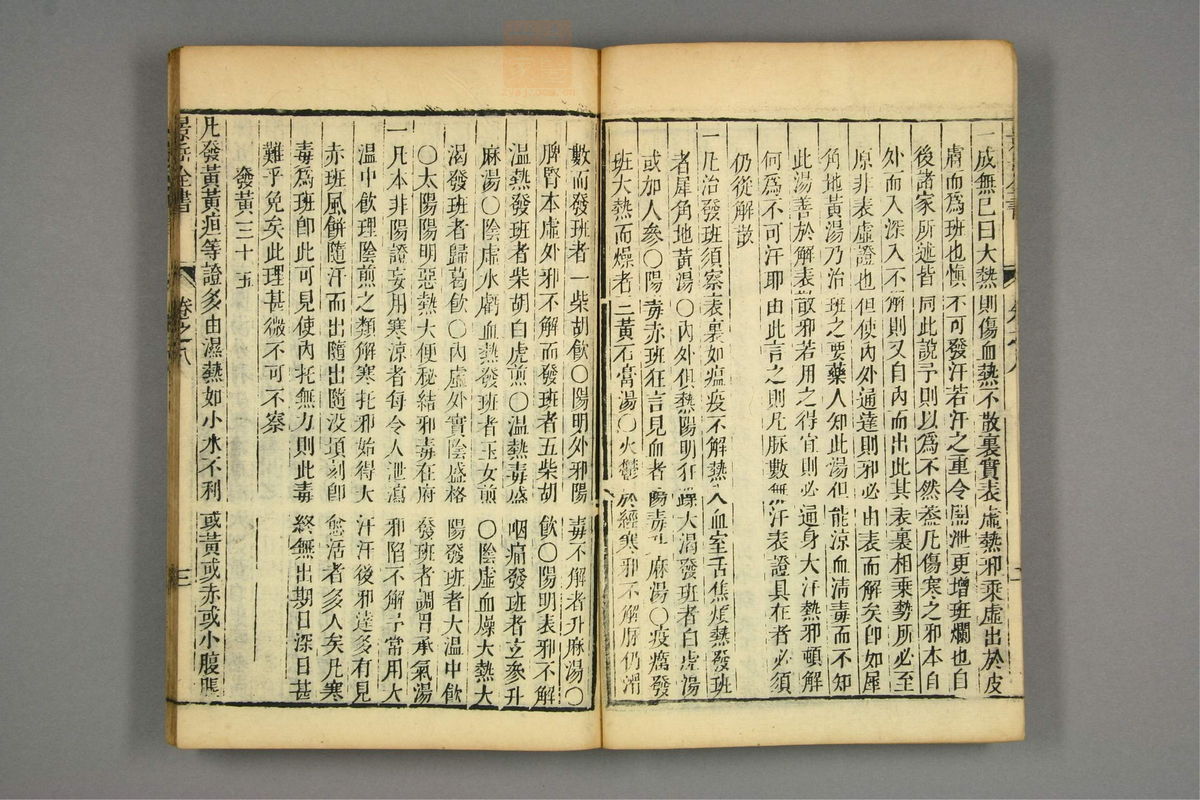 一成無己曰大熱則傷血熱不散裏實表虛熱邪乘虛出於皮
膚而為班也慎不可發汗若汗之重令開泄更增班爛也自
後諸家所述皆同此說予則以為不然葢凡傷寒之邪本自
外而入深入不觧則又自內而出此其表裏相乘勢所必至
原非表虛證也但使內外通達則邪必由表而解矣卽如犀
角地黃湯乃治班之要藥人知此湯但能涼血清毒而不知
此湯善於解表散邪若用之得宜則必通身大汗熱邪頓解
何為不可汗耶由此言之則凡脉數無汗表證具在者必須
仍從解散
一凡治發班須察表裏如瘟疫不解熱入血室舌焦煩熱發班
者犀角地黃湯〇內外俱熱陽明狂躁大渴發班者白虎湯
或加人參〇陽毒赤班狂言見血者陽毒升麻湯〇疫癘發
班大熱而燥者三黃石膏湯〇火鬱於經寒邪不解脉仍滑
數而發班者一柴胡飲〇陽明外邪陽毒不解者升麻湯〇
脾腎本虛外邪不解而發班者五柴胡飲〇陽明表邪不解
溫熱發班者柴胡白虎煎〇溫熱毒盛咽痛發班者玄參升
麻湯〇陰虛水虧血熱發班者玉女煎〇陰虛血燥大熱大
渴發班者歸葛飲〇內虛外實陰盛格陽發班者大溫中飲
〇太陽陽明惡熱大便秘結邪毒在府發班者調胃承氣湯
一凡本非陽證妄用寒涼者每令人泄瀉邪陷不解予常用大
溫中飲理陰煎之類解寒托邪始得大汗汗後邪達多有見
赤班風餅隨汗而出隨出隨没頃刻卽愈活者多人矣凡寒
毒為班卽此可見使內托無力則此毒終無出期日深日甚
難乎免矣此理甚微不可不察
發黃三十五
凡發黃黃疸等證多由濕熱如小水不利或黃或赤或小腹脹
景岳全書
卷之八
三